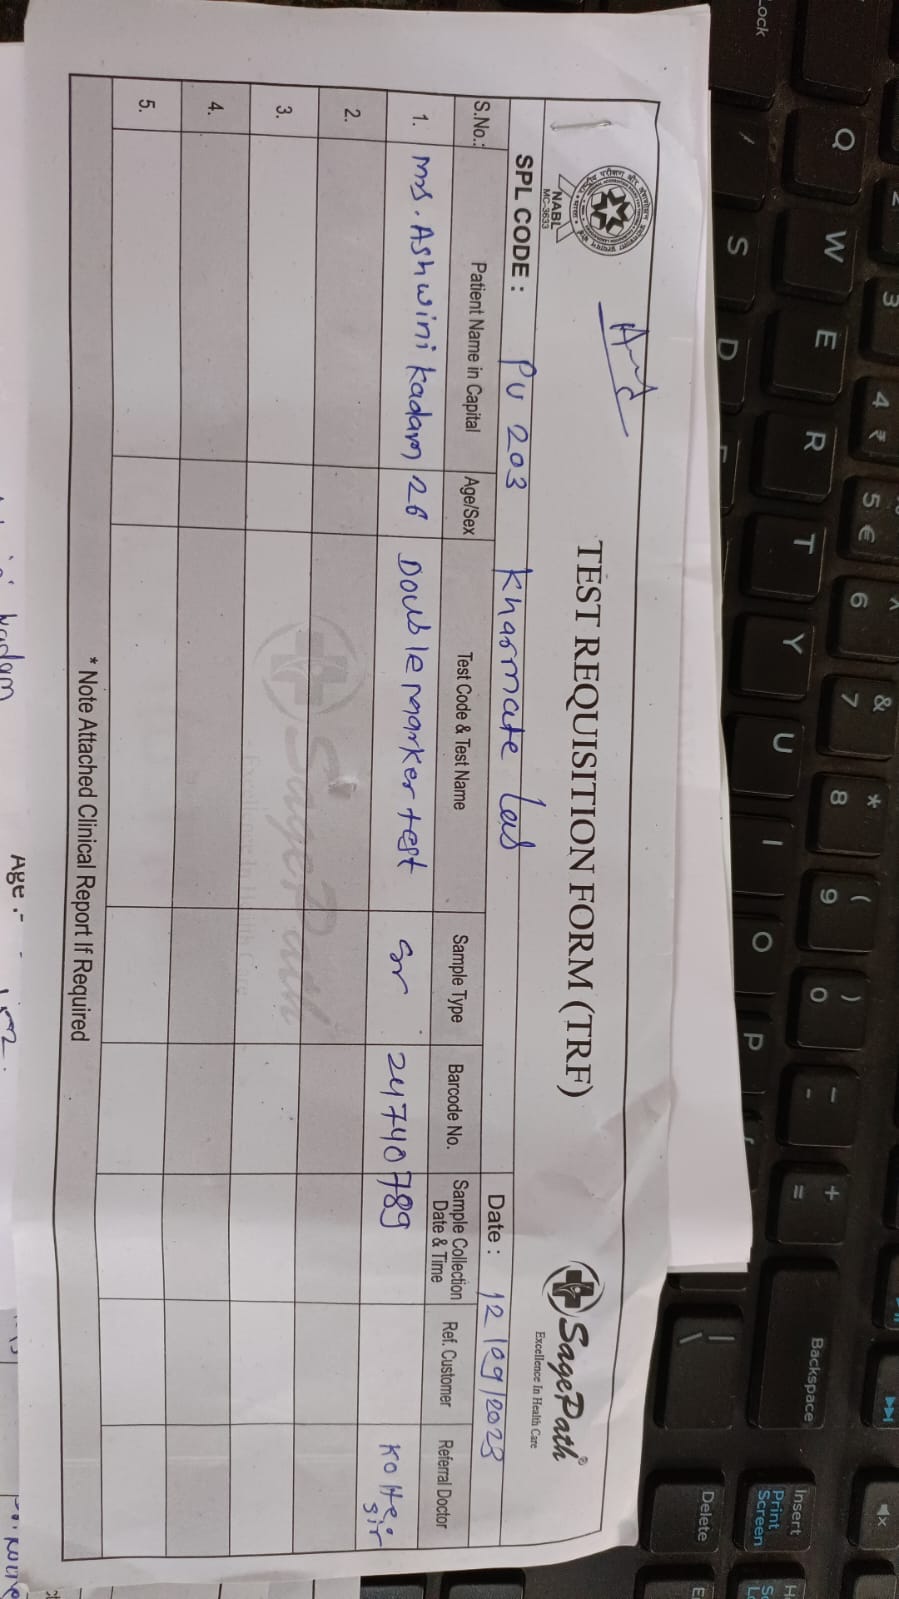 NABL
MC-3633
TEST REQUISITION FORM (TRF)
SagePath®
Excellence In Health Care
SPL CODE : PU 203 Kharmate Lab
Date : 12/09/2023
S.No.: Patient Name in Capital Age/Sex Test Code & Test Name Sample Type Barcode No. Sample Collection Date & Time Ref. Customer Referral Doctor
1. Mrs. Ashwini Kadam 26 Double marker test Sr 24740789 Kolte. Sir
2.
3.
4.
5.
SagePath
* Note Attached Clinical Report If Required
kadam
Age :-
Lock
Q W E R T Y U I O P
S D
3 4 ₹ 5 € 6 & 7 * 8 ( 9 ) 0 - + =
Backspace
Insert
Print Screen
Delete